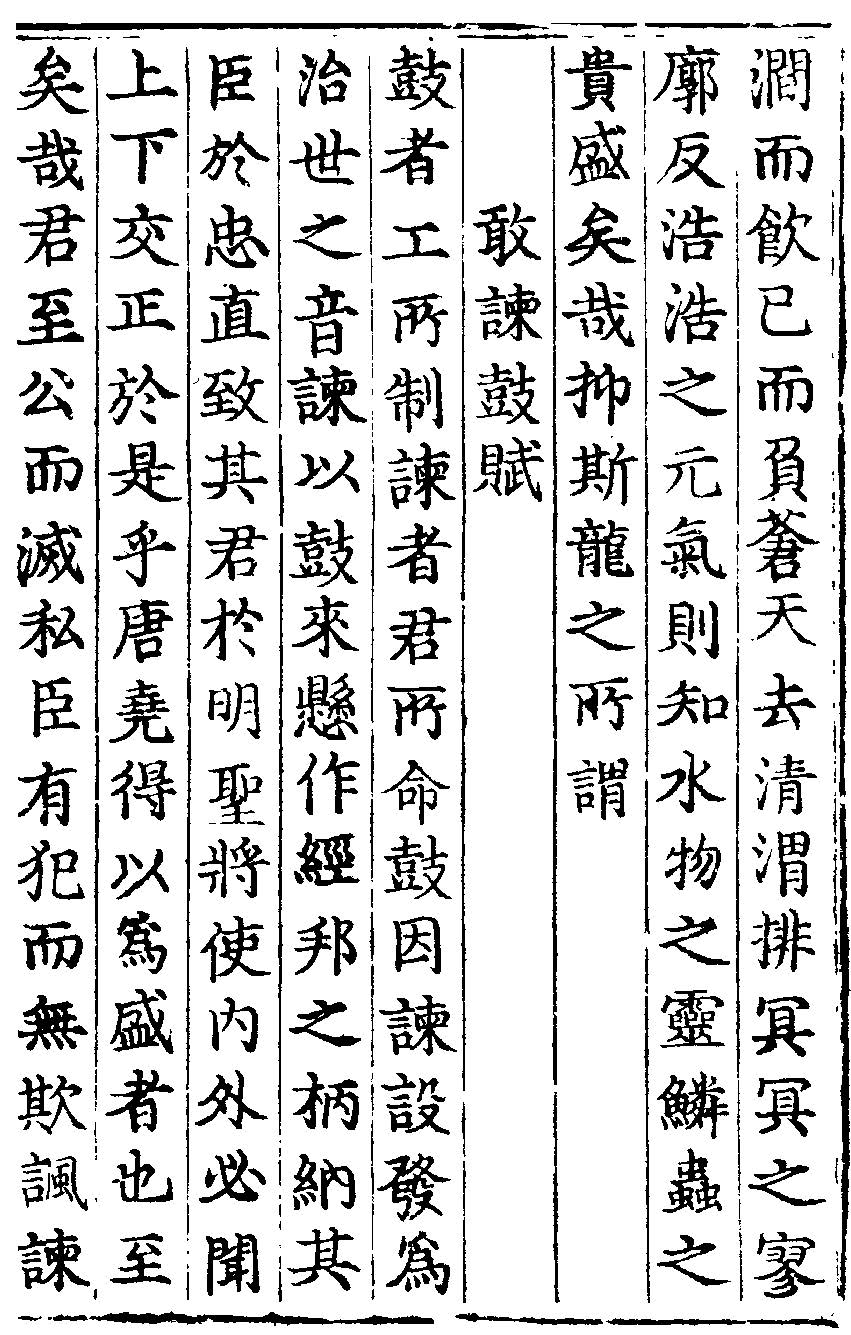 澗而飲已而負蒼天去清渭排冥冥之寥
廓反浩浩之元氣則知水物之靈鱗蟲之
貴盛矣哉抑斯龍之所謂
敢諫鼓賦
鼓者工所制諫者君所命鼓因諫設發爲
治世之音諫以鼓來懸作經邦之柄納其
臣於忠直致其君於明聖將使內外必聞
上下交正於是乎唐堯得以爲盛者也至
矣哉君至公而滅私臣有犯而無欺諷諫